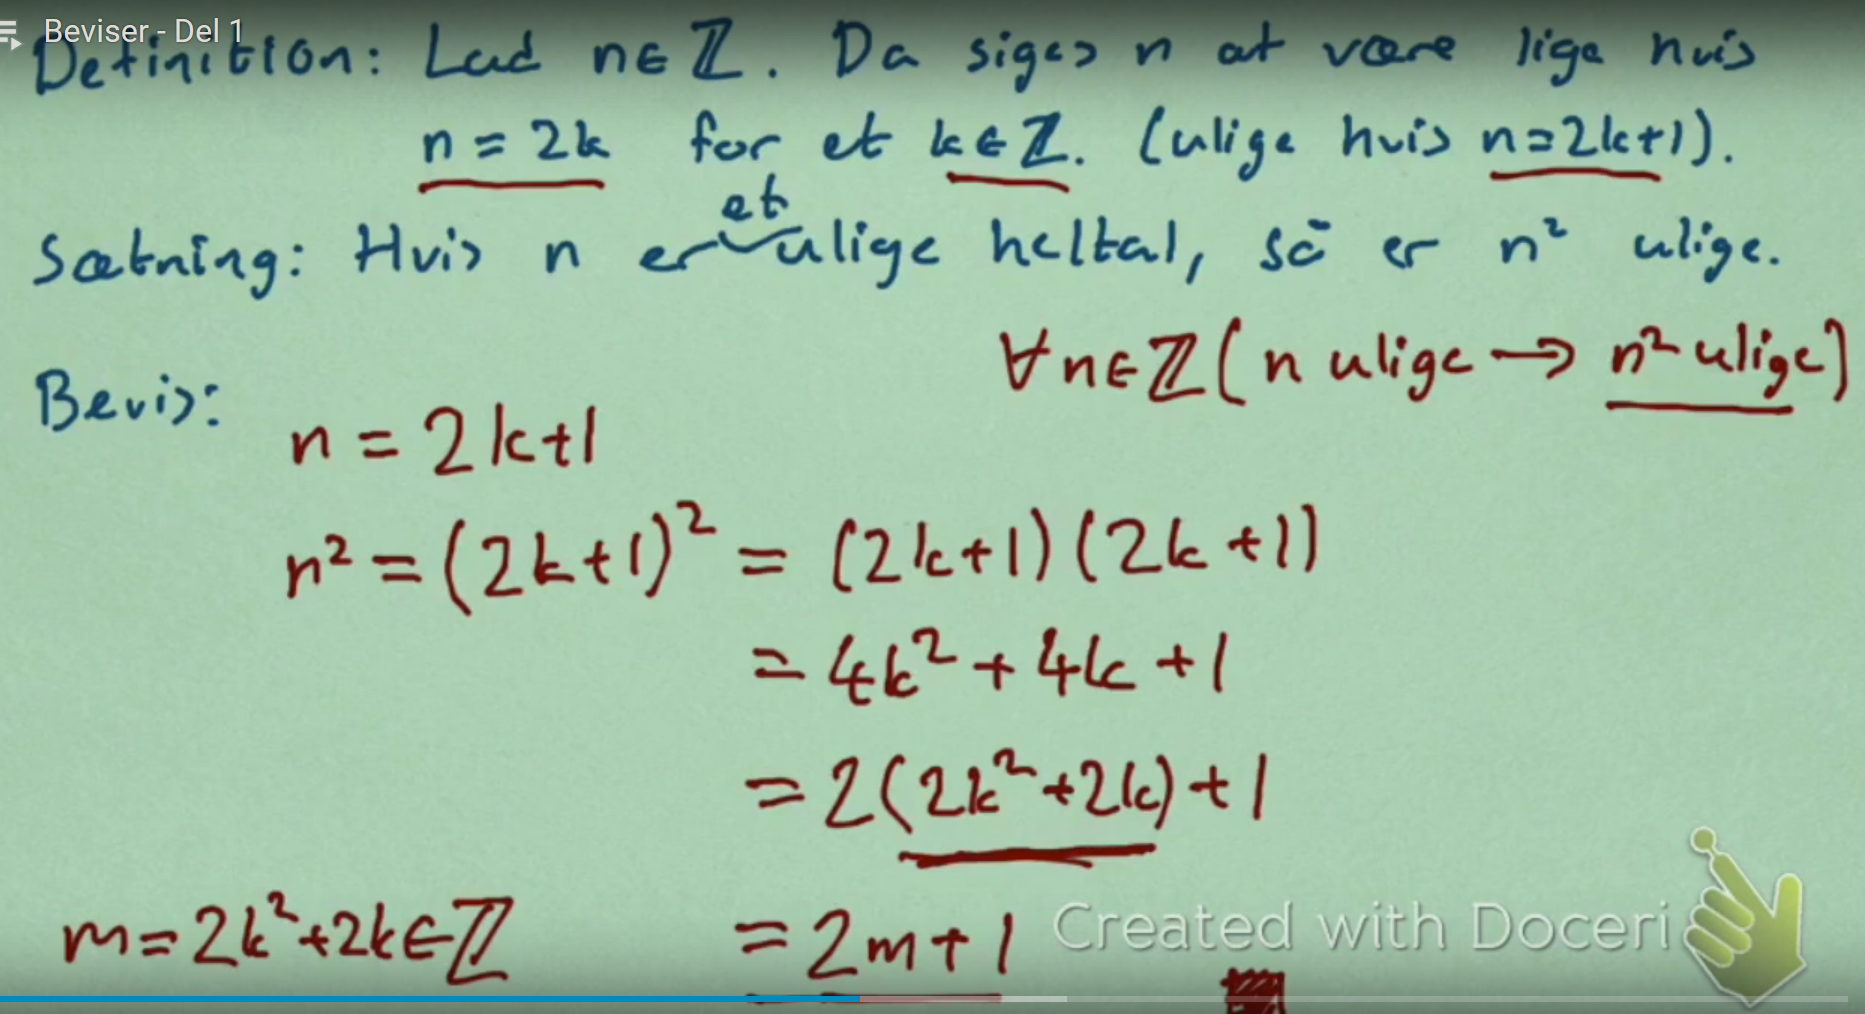 Beviser - Del 1
Definition: Lad n∈ℤ. Da siges n at være lige hvis
n = 2k for et k∈ℤ. (ulige hvis n=2k+1).
et
Sætning: Hvis n er ulige heltal, så er n² ulige.
∀n∈ℤ(n ulige → n² ulige)
Bevis:
n = 2k+1
n² = (2k+1)² = (2k+1)(2k+1)
= 4k² + 4k + 1
= 2(2k²+2k)+1
m=2k²+2k∈ℤ = 2m+1
Created with Doceri